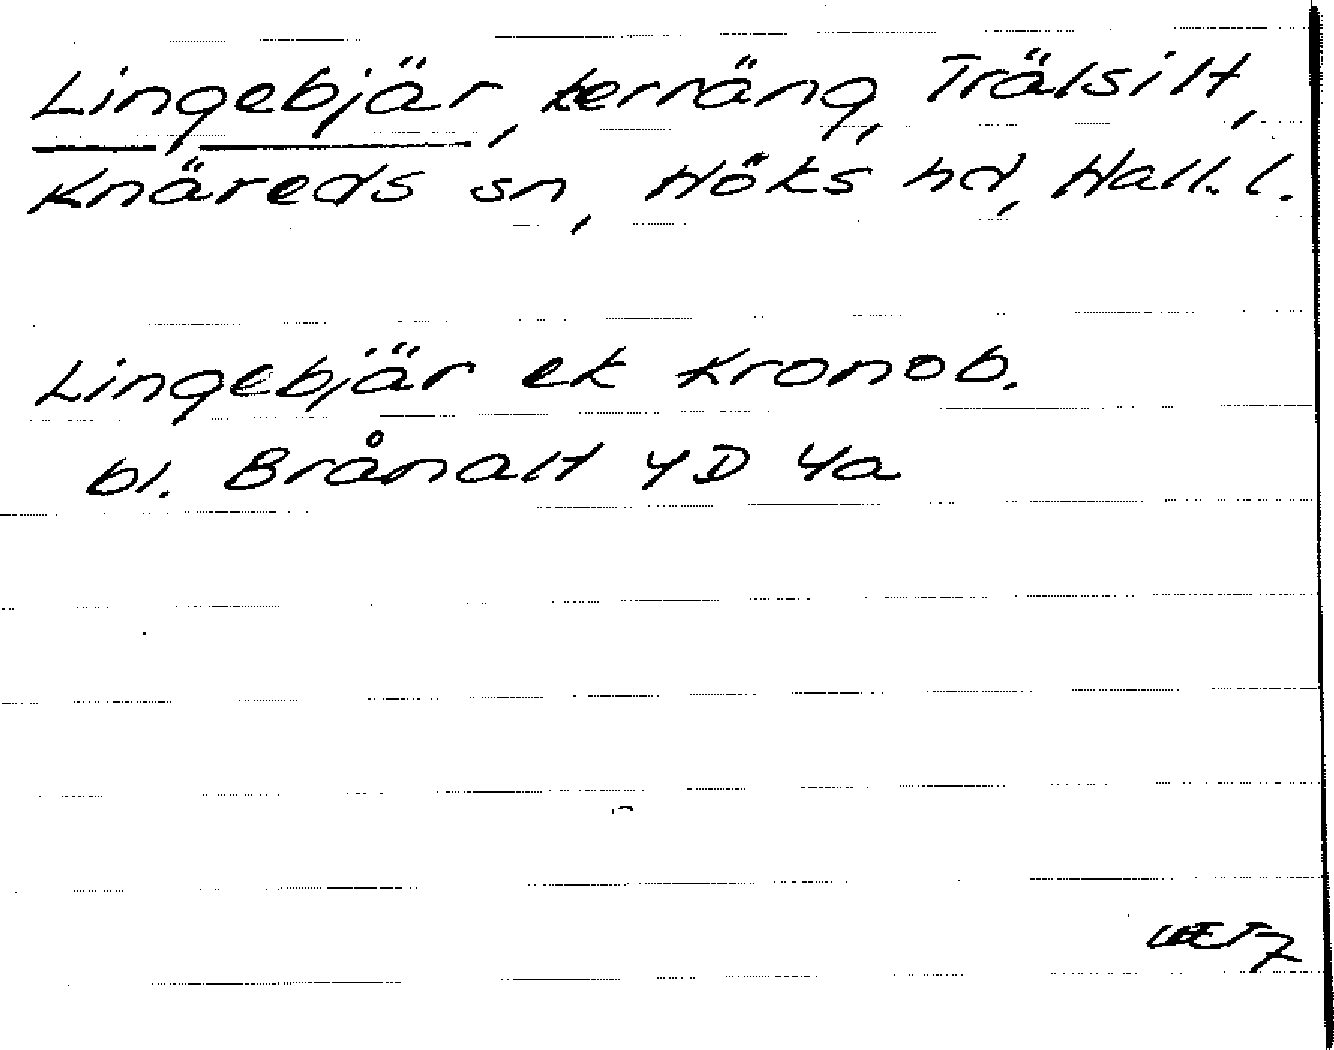 Lingebjär, terräng, Trälsilt,
Knäreds sn, Höks hd, Hall. l.
Lingebjär ek Kronob.
bl. Brånalt 4D 4a